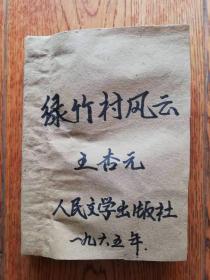 绿竹村风云
王杏元
人民文学出版社
一九六五年.